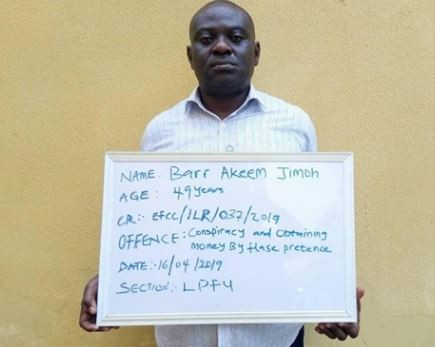 NAME:- Barr Akeem Jimoh
AGE: 49 years
CR:- EFCC/ILR/037/2019
OFFENCE: Conspiracy and Obtaining
money By flase pretence
DATE:- 16/04/2019
SECTION:- LPFU